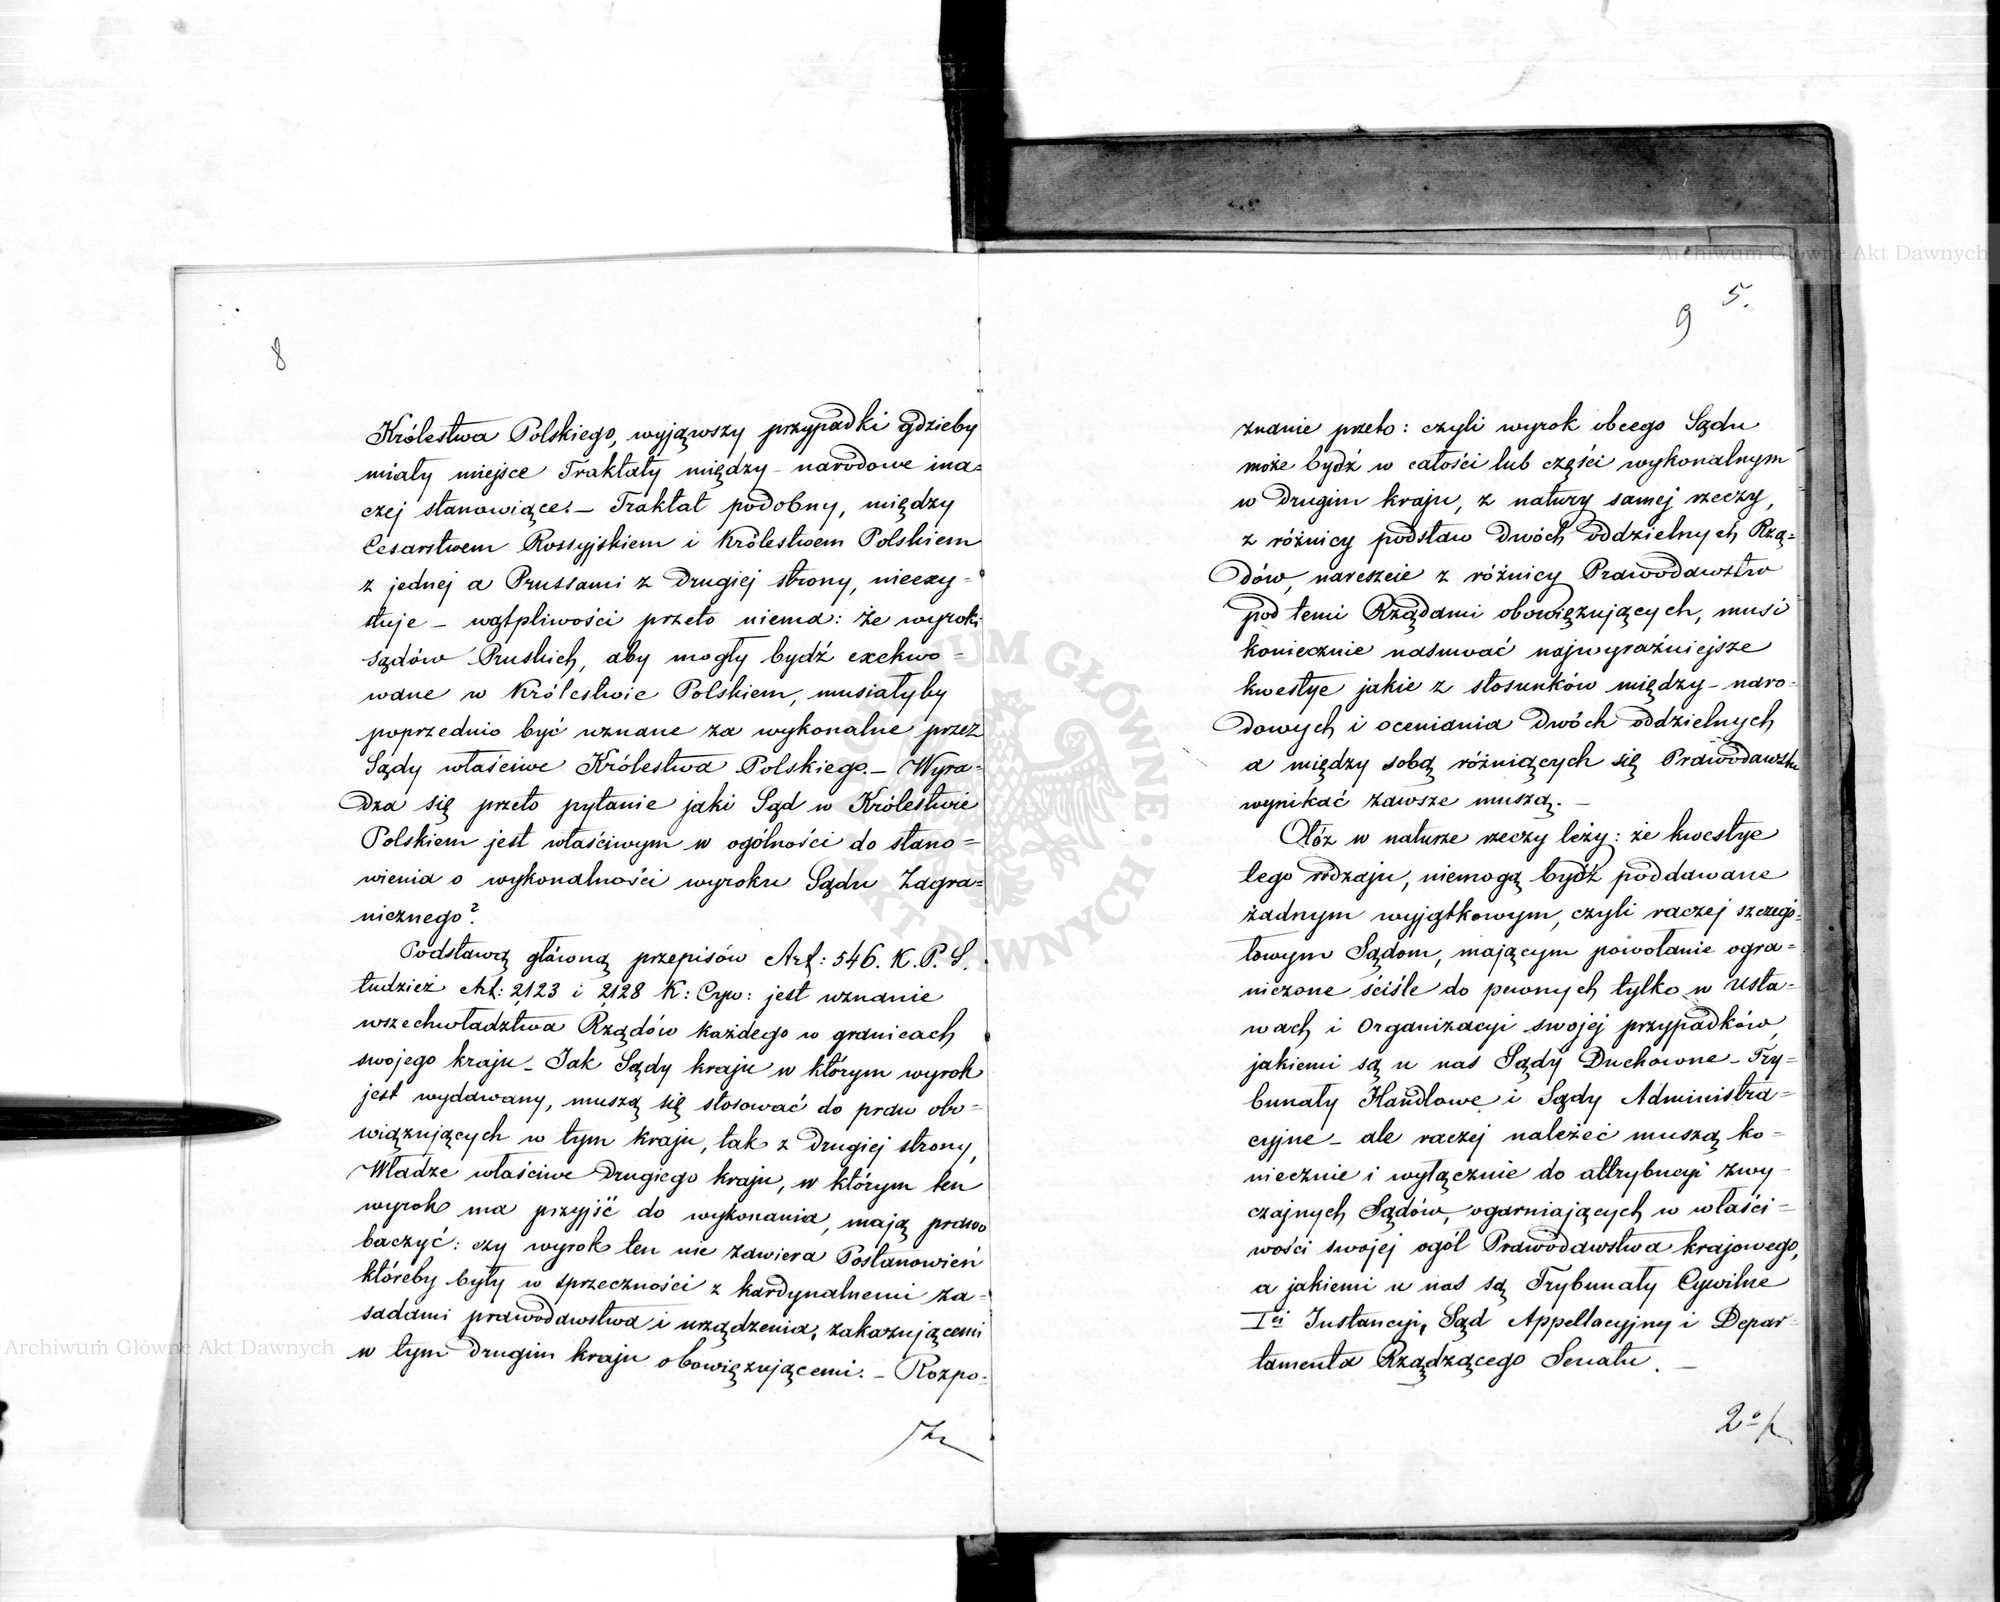 8
Królestwa Polskiego, wyjąwszy przypadki gdzieby
miały miejsce Traktaty między-narodowe ina=
czej stanowiące.— Traktat podobny, między
Cesarstwem Rossyjskiem i Królestwem Polskiem
z jednej a Prussami z drugiej strony, nieexy=
stuje — wątpliwości przeto niema: że wyroki
sądów Pruskich, aby mogły bydź exekwo=
wane w Królestwie Polskiem, musiałyby
poprzednio być uznane za wykonalne przez
Sądy właściwe Królestwa Polskiego.— Wyra=
dza się przeto pytanie jaki Sąd w Królestwie
Polskiem jest właściwym w ogólności do stano=
wienia o wykonalności wyroku Sądu Zagra=
nicznego?
Podstawą główną przepisów Art: 546. K. P. S.
tudzież Art: 2123 i 2128 K: Cyw: jest uznanie
wszechwładztwa Rządów każdego w granicach
swojego kraju — Jak Sądy kraju w którym wyrok
jest wydawany, muszą się stosować do praw obo=
wiązujących w tym kraju, tak z drugiej strony,
Władze właściwe drugiego kraju, w którym ten
wyrok ma przyjść do wykonania, mają prawo
baczyć: czy wyrok ten nie zawiera Postanowień
któreby były w sprzeczności z kardynalnemi za=
sadami prawodawstwa i urządzenia, zakazującemi
w tym drugim kraju obowięzującemi.— Rozpo=
9 5.
znanie przeto: czyli wyrok obcego Sądu
może bydź w całości lub części wykonalnym
w drugim kraju, z natury samej rzeczy,
z różnicy podstaw dwóch oddzielnych Rzą=
dów, nareszcie z różnicy Prawodawstw
pod temi Rządami obowięzujących, musi
koniecznie nasuwać najwyraźniejsze
kwestye jakie z stosunków między-naro=
dowych i oceniania dwóch oddzielnych
a między sobą różniących się Prawodawstw
wynikać zawsze muszą.—
Otóż w naturze rzeczy leży: że kwestye
tego rodzaju, niemogą bydź poddawane
żadnym wyjątkowym, czyli raczej szczegó=
łowym Sądom, mającym powołanie ogra=
niczone ściśle do pewnych tylko w Usta=
wach i Organizacyi swojej przypadków,
jakiemi są u nas Sądy Duchowne — Try=
bunały Handlowe i Sądy Administra=
cyjne — ale raczej należeć muszą ko=
niecznie i wyłącznie do attrybucyi zwy=
czajnych Sądów, ogarniających w właści=
wości swojej ogół Prawodawstwa krajowego,
a jakiemi u nas są Trybunały Cywilne
Iej Instancyi, Sąd Appellacyjny i Depar=
tamenta Rządzącego Senatu.—
2o/
Archiwum Główne Akt Dawnych
Archiwum Główne Akt Dawnych